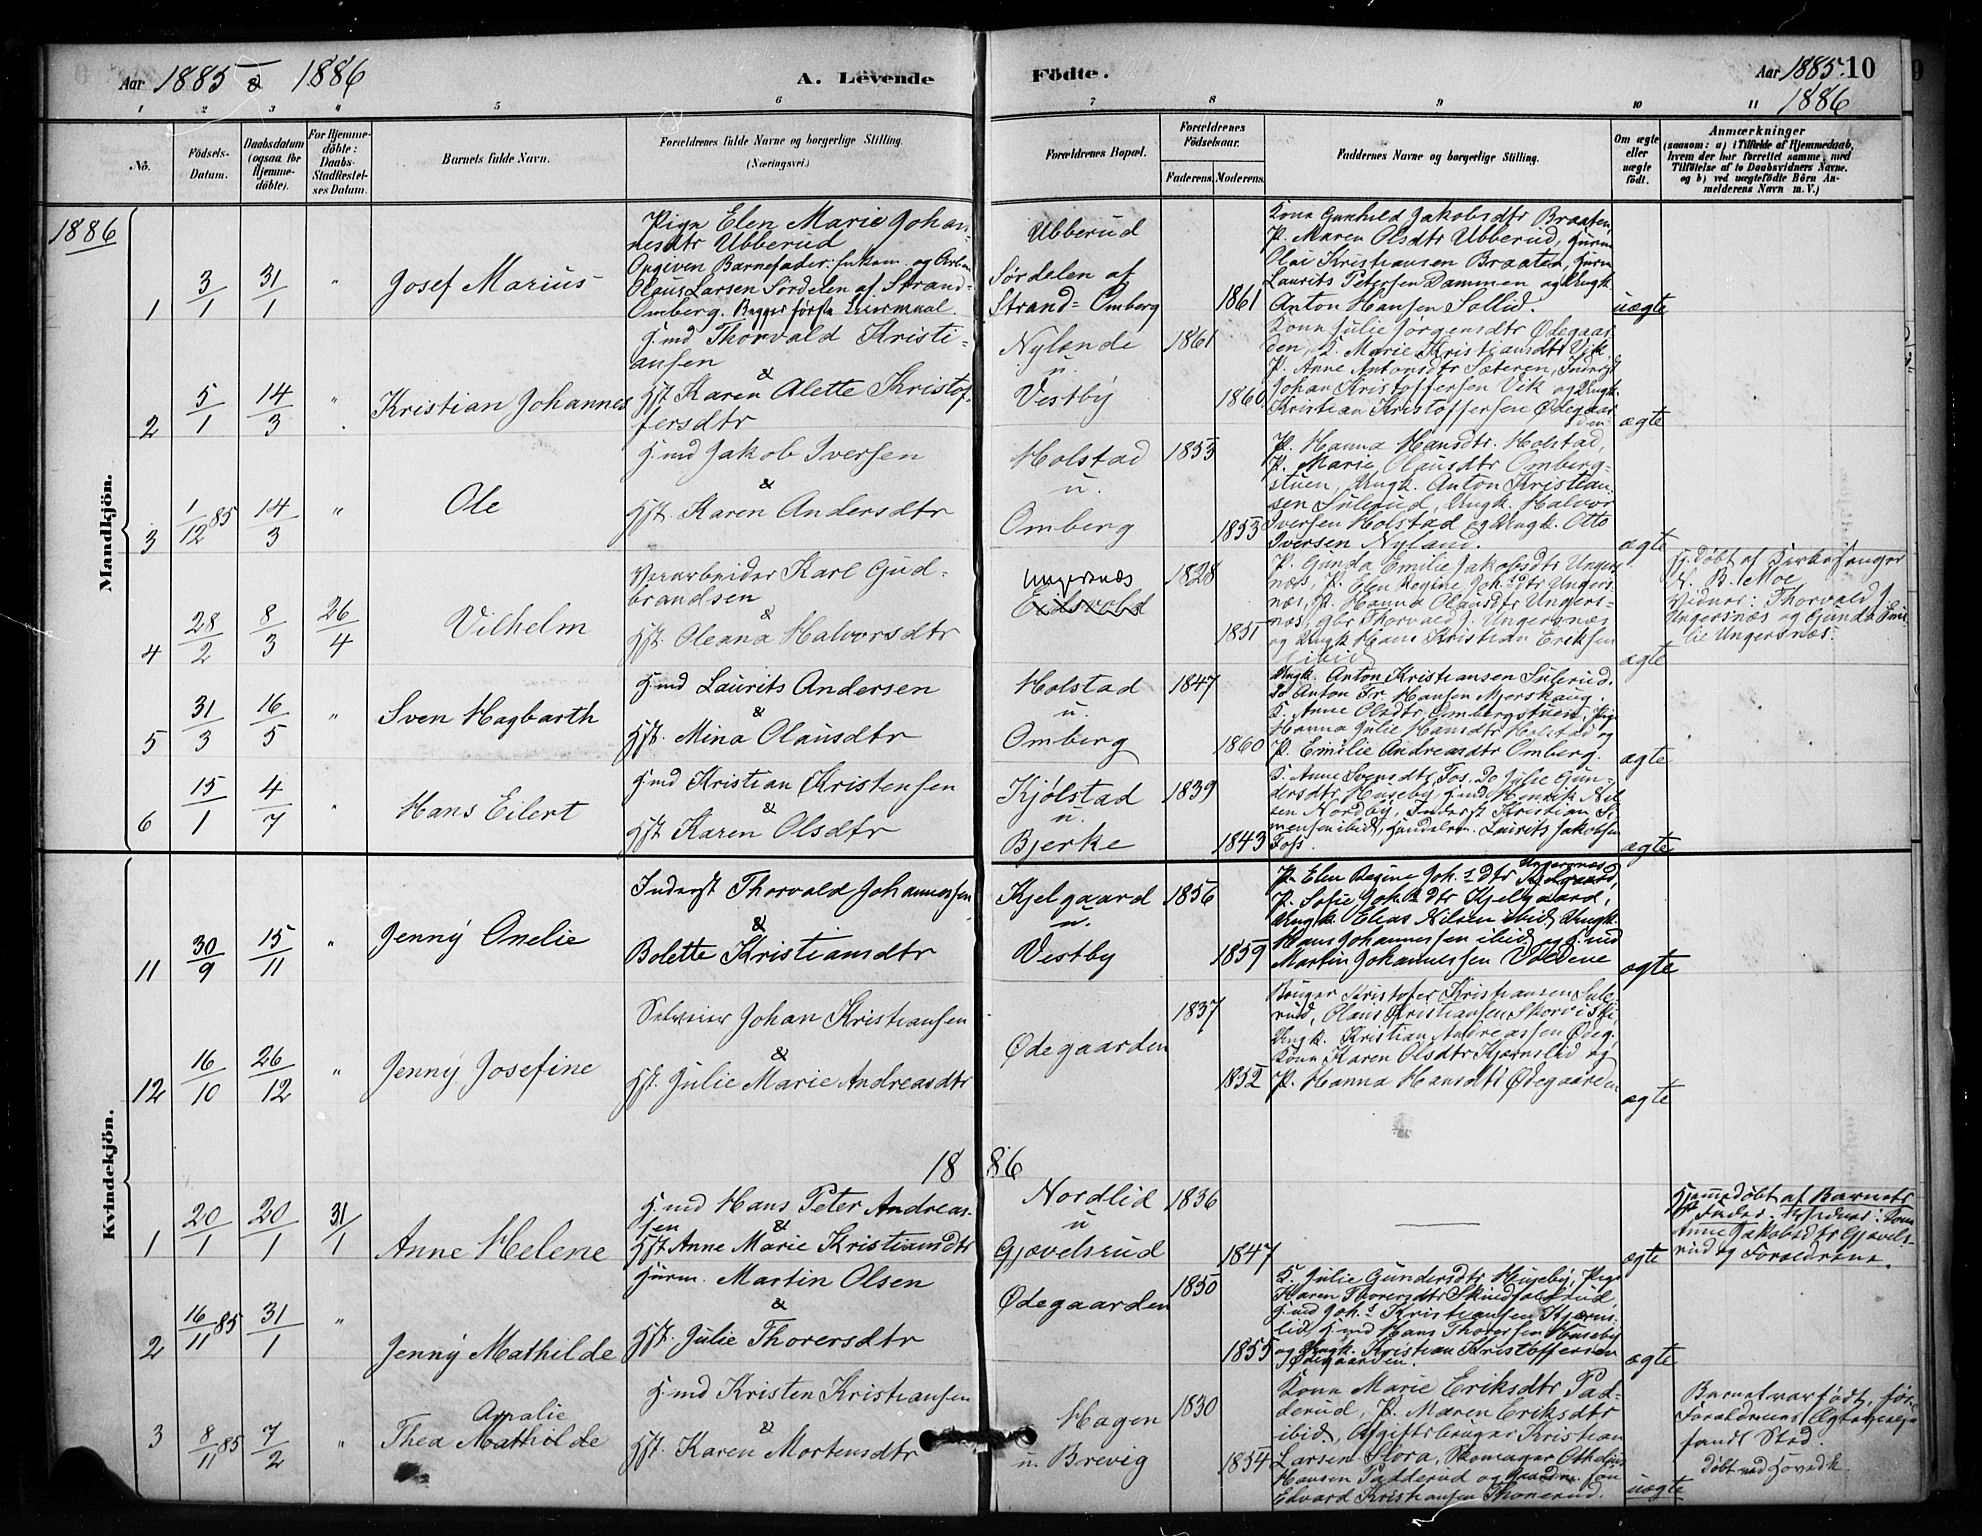 Aar 1885 & 1886
A. Levende
Födte.
Aar 1885. 10
1886
1 2 3 4 5 6 7 8 9 10 11
No.
Födsels-
Datum.
Daabsdatum
(ogsaa for
Hjemme-
döbte).
For Hjemme-
döbte:
Daabs-
Stadfæstel-
ses Datum.
Barnets fulde Navn.
Forældrenes fulde Navne og borgerlige Stilling.
(Næringsvei.)
Forældrenes Bopæl.
Forældrenes
Födselsaar.
Faderens.
Moderens.
Faddernes Navne og borgerlige Stilling.
Om ægte
eller
uægte
født.
Anmærkninger
(saasom: a) i Tilfælde af Hjemmedaab,
hvem der har forrettet samme, med
Tilföielse af to Daabsvidners Navne.
og b) ved uægtefödte Börn An-
melderens Navn m. V.)
1886
Mandkjön.
1 3/1 31/1 " Josef Marius
Pige Elen Marie Johan-
nesdtr Ubberud
Opgiven Barnefader: Unkam. og Arb.
Olaus Larsen Sørdelen af Strand-
Omberg. Begges første Leiermaal.
Ubberud
Sørdelen af
Strand=Omberg
1861
Kone Gunhild Jakobsdtr Braaten,
P. Maren Olsdtr Ubberud, Gurm
Olai Kristiansen Braaten, Gurm
Laurits Petersen Dammen og Ungk
Anton Hansen Sollid.
uægte
2 5/1 14/3 " Kristian Johannes
Gmd Thorvald Kristi-
ansen
&
Hst Karen Alette Kristof-
fersdtr
Nylende
u.
Vestby
1861
1860
Kone Julie Jørgensdtr Ødegaar-
den, K. Marie Kristiansdtr Vik
P. Anne Antonsdtr Sæteren, Inderst
Johan Kristoffersen Vik og Ungk.
Kristian Kristoffersen Ødegaar-
den
ægte
3 1/12 85 14/3 " Ole
Gmd Jakob Iversen
&
Hst. Karen Andersdtr
Holstad
u.
Omberg
1853
1853
P. Hanna Hansdtr. Holstad,
P. Marie Olausdtr Omberg-
stuen, Ungk. Anton Kristian-
sen Sulerud, Ungk. Halvor
Iversen Holstad og Ungk. Otto
Iversen Nyland.
ægte
4 28/2 8/3 26/4 Vilhelm
Karl Gud-
brandsen
&
Hst. Oleana Halvorsdtr
Ungersnæs
1828
1851
P. Gunda Emilie Jakobsdtr Ungers-
næs, P. Elen Regine Joh.sdtr Ungers-
næs, P. Hanna Olausdtr Ungers-
næs, Gbr Thorvald J. Ungersnæs
og Ungk Hans Kristian Eriksen
ibid
ægte
Hj. døbt af Kirkesanger
B. Moe
Vidner: Thorvald J.
Ungersnæs og Gunda Emi-
lie Ungersnæs.
5 31/3 16/5 " Sven Hagbarth
Gmd Laurits Andersen
&
Hst. Mina Olausdtr
Holstad
u.
Omberg
1847
1860
Ungk. Anton Kristiansen Sulerud.
Do Anton Fr. Hansen Mjerskaug.
K. Anne Olsdtr Ombergstuen, Pige
Hanna Julie Hansdtr Holstad og
P. Emilie Andreasdtr Omberg.
ægte
6 15/1 4/7 " Hans Eilert
Gmd Kristian Kristensen
&
Hst Karen Olsdtr
Kjølstad
u.
Bjerke
1839
1843
K. Anne Svensdtr Fos. Do Julie Gun-
dersdtr Huseby, Gmd Henrik Nil-
sen Nordby, Inderst Kristian Si-
mensen ibid, Handelsm. Laurits Jakobsen
Foss.
ægte
Kvindekjön.
11 30/9 15/11 " Jenny Onelie
Inderst Thorvald Johannessen
&
Bolette Kristiansdtr
Kjelgaard
u.
Vestby
1856
1859
P. Elen Regine Joh.sdtr Ungersnæs,
P. Sofie Joh.sdtr Kjelgaard,
Ungk. Elias Nilsen ibid, Ungk.
Hans Johannessen ibid og Gmd
Martin Johannessen Voldene
ægte
12 16/10 26/12 " Jenny Josefine
Selveier Johan Kristiansen
&
Hst. Julie Marie Andreasdtr
Ødegaarden
1837
1852
Bruger Kristofer Kristiansen Sule-
rud, Olaus Kristiansen Skorvi Ski,
Ungk. Kristian Andreassen Ødeg.
Kone Karen Olsdtr Kjærnslid og
P. Hanna Hansdtr Ødegaarden
ægte
1886
1 20/1 20/1 31/1 Anne Helene
Gmd Hans Peter Andreas-
sen
&
Hst Anne Marie Kristiansdtr
Nordlid
u
Gjævelsrud
1836
1847
ægte
Hjemmedøbt af Barnets
Fader. Vidner: Kone
Anne Jakobsdtr Gjævels-
rud og Forældrene.
2 16/11 85 31/1 " Jenny Mathilde
Gurm. Martin Olsen
&
Hst. Julie Thorersdtr
Ødegaarden
1850
1855
K. Julie Gundersdtr Huseby, Pige
Karen Thorersdtr Skindfalerud,
Gmd Joh.s Kristiansen Kjærns-
lid, Gmd Hans Thorersen Huseby
og Ungk. Kristian Kristoffersen
Ødegaarden.
ægte
3 8/11 85 7/2 " Thea Amalie Mathilde
Gmd Kristen Kristiansen
&
Hst. Karen Mortensdtr
Hagen
u. Brevig
1830
1854
Kone Marie Eriksdtr Pad-
derud, P. Maren Eriksdtr
ibid, Afgiftsbruger Kristian
Larsen Flora, Skomager Othelius
Hansen Padderud og Gaardm. søn
Edvard Kristiansen Thonerud.
uægte
Barnet var født, før
Forældrenes Ægtevielse
fandt Sted.
Døbt ved Hovedk.